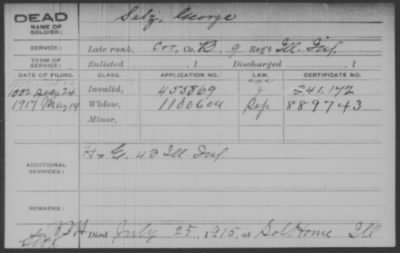 DEAD
NAME OF SOLDIER:
Selz, George
SERVICE: Late rank, Cor, Co. B, 9 Reg't Ill. Inf.
TERM OF SERVICE: Enlisted , 1 Discharged , 1
DATE OF FILING. CLASS. APPLICATION NO. LAW. CERTIFICATE NO.
1882 24 Invalid, 455869 241,142
1917 May 14 Widow, 1100604 Sep 889743
Minor,
ADDITIONAL SERVICES: H & G. 43 Ill Inf.
REMARKS:
Died July 25, 1915, at Sol Home Ill